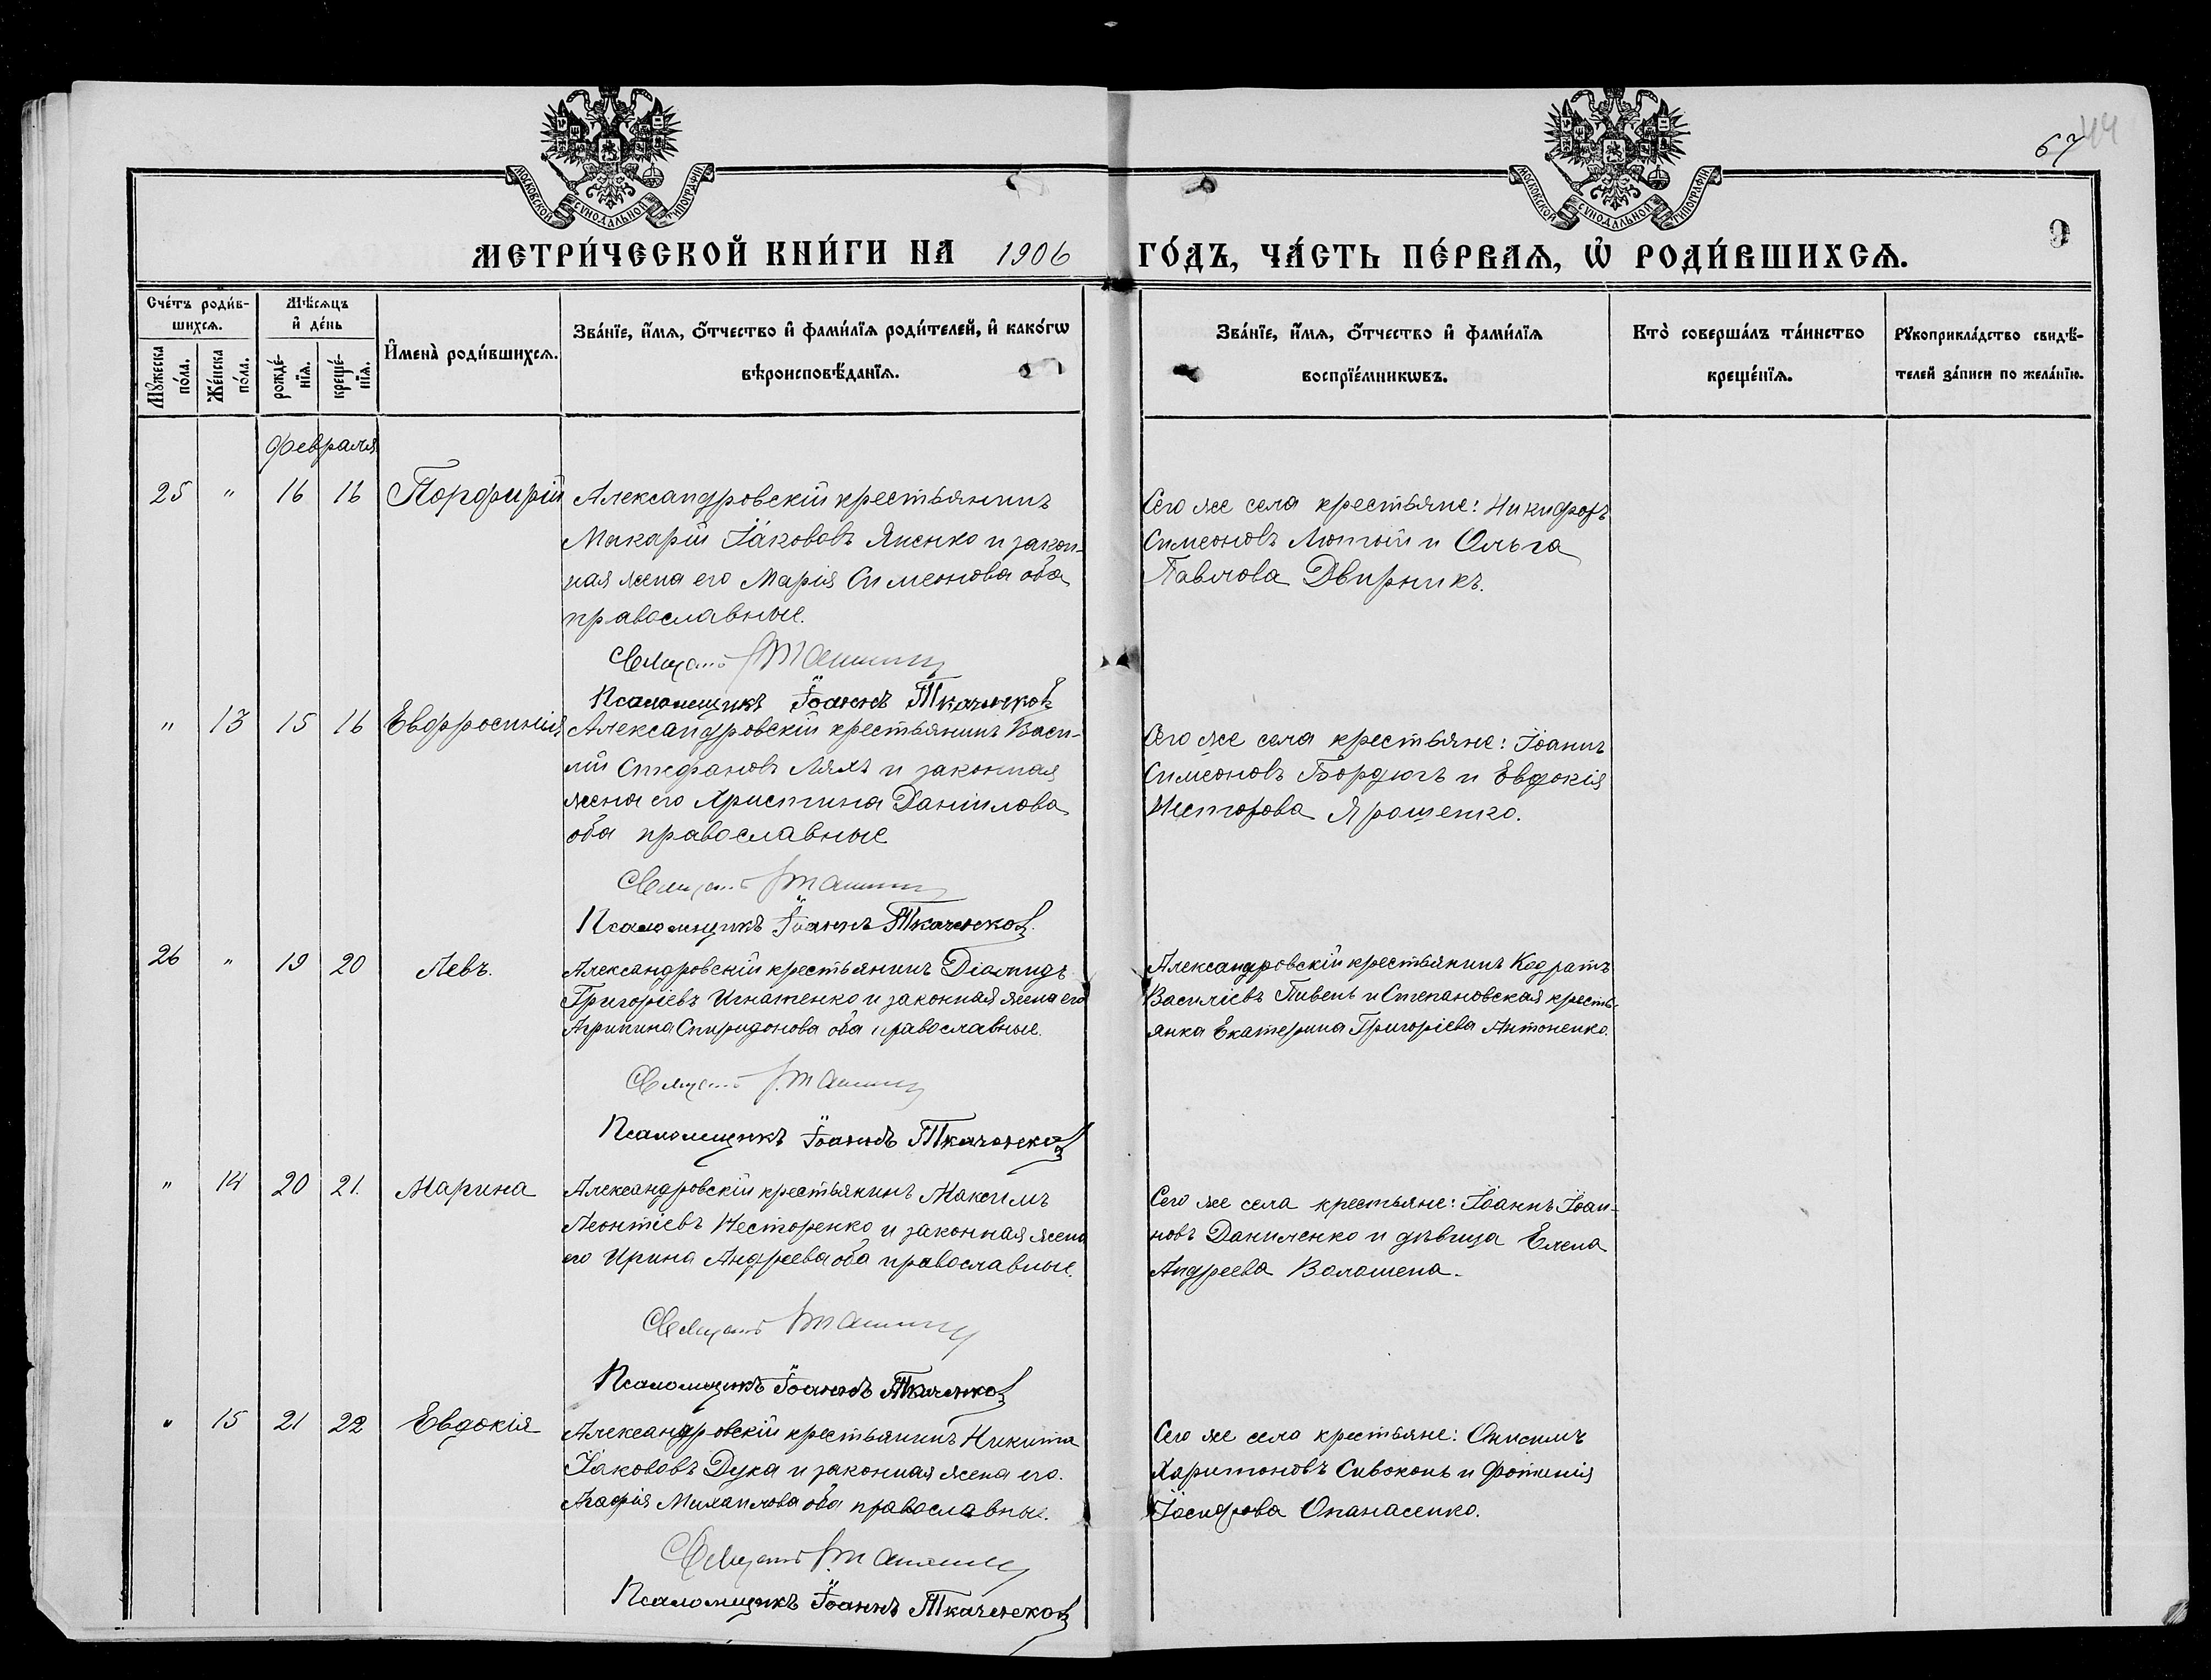 67 44
МОСКОВСКОЙ СѴНОДАЛЬНОЙ ТИПОГРАФІИ
МОСКОВСКОЙ СѴНОДАЛЬНОЙ ТИПОГРАФІИ
МЕТРИ́ЧЕСКОЙ КНИ́ГИ НА 1906 ГО́ДЪ, ЧА́СТЬ ПЕ́РВАѦ, Ѡ҆ РОДИ́ВШИХСѦ.
9
Сче́тъ роди́в-
шихсѧ.
Мꙋ́жеска
по́ла.
Же́нска
по́ла.
Мѣ́сѧцъ
и҆ де́нь
рожде́-
нїѧ.
креще́-
нїѧ.
И҆мена̀ роди́вшихсѧ.
Зва́нїе, и҆́мѧ, ѻ҆́тчество и҆ фами́лїѧ роди́телей, и҆ како́гѡ
вѣроисповѣ́данїѧ.
Зва́нїе, и҆́мѧ, ѻ҆́тчество и҆ фами́лїѧ
воспрїе́мникѡвъ.
Кто̀ соверша́лъ та́инство
креще́нїѧ.
Рꙋкоприкла́дство свидѣ́-
телей за́писи по жела́нїю.
Февраля
25 " 16 16 Порфирій
Александровскій крестьянинъ
Макарій Іаковъ Яненко и закон-
ная жена его Марія Симеонова оба
православные.
Священ.
Псаломщикъ Іоаннъ Ткаченковъ
Сего же села крестьяне: Никифоръ
Симеоновъ Лютый и Ольга
Павлова Двирникъ.
" 13 15 16 Евфросинія
Александровскій крестьянинъ Васи-
лій Стефановъ Ляхъ и законная
жена его Христина Даніилова
оба православные
Священ.
Псаломщикъ Іоаннъ Ткаченковъ
Сего же села крестьяне: Іоаннъ
Симеоновъ Бордюгъ и Евдокія
Несторова Ярошенко.
26 " 19 20 Левъ.
Александровскій крестьянинъ Діомидъ
Григоріевъ Игнатенко и законная жена его
Агрипина Спиридонова оба православные.
Священ.
Псаломщикъ Іоаннъ Ткаченковъ
Александровскій крестьянинъ Кодратъ
Василіевъ Пивень и Степановская кресть-
янка Екатерина Григоріева Антоненко.
" 14 20 21. Марина
Александровскій крестьянинъ Максимъ
Леонтіевъ Несторенко и законная жена
его Ирина Андреева оба православные.
Священ.
Псаломщикъ Іоаннъ Ткаченковъ
Сего же села крестьяне: Іоаннъ Іоан-
новъ Даниленко и дѣвица Елена
Андреева Волошена.
" 15 21 22 Евдокія
Александровскій крестьянинъ Никита
Іакововъ Дука и законная жена его.
Агафія Михаилова оба православные.
Священ.
Псаломщикъ Іоаннъ Ткаченковъ
Сего же села крестьяне: Онисимъ
Харитоновъ Сивоконь и Фотинія
Іосифова Опанасенко.